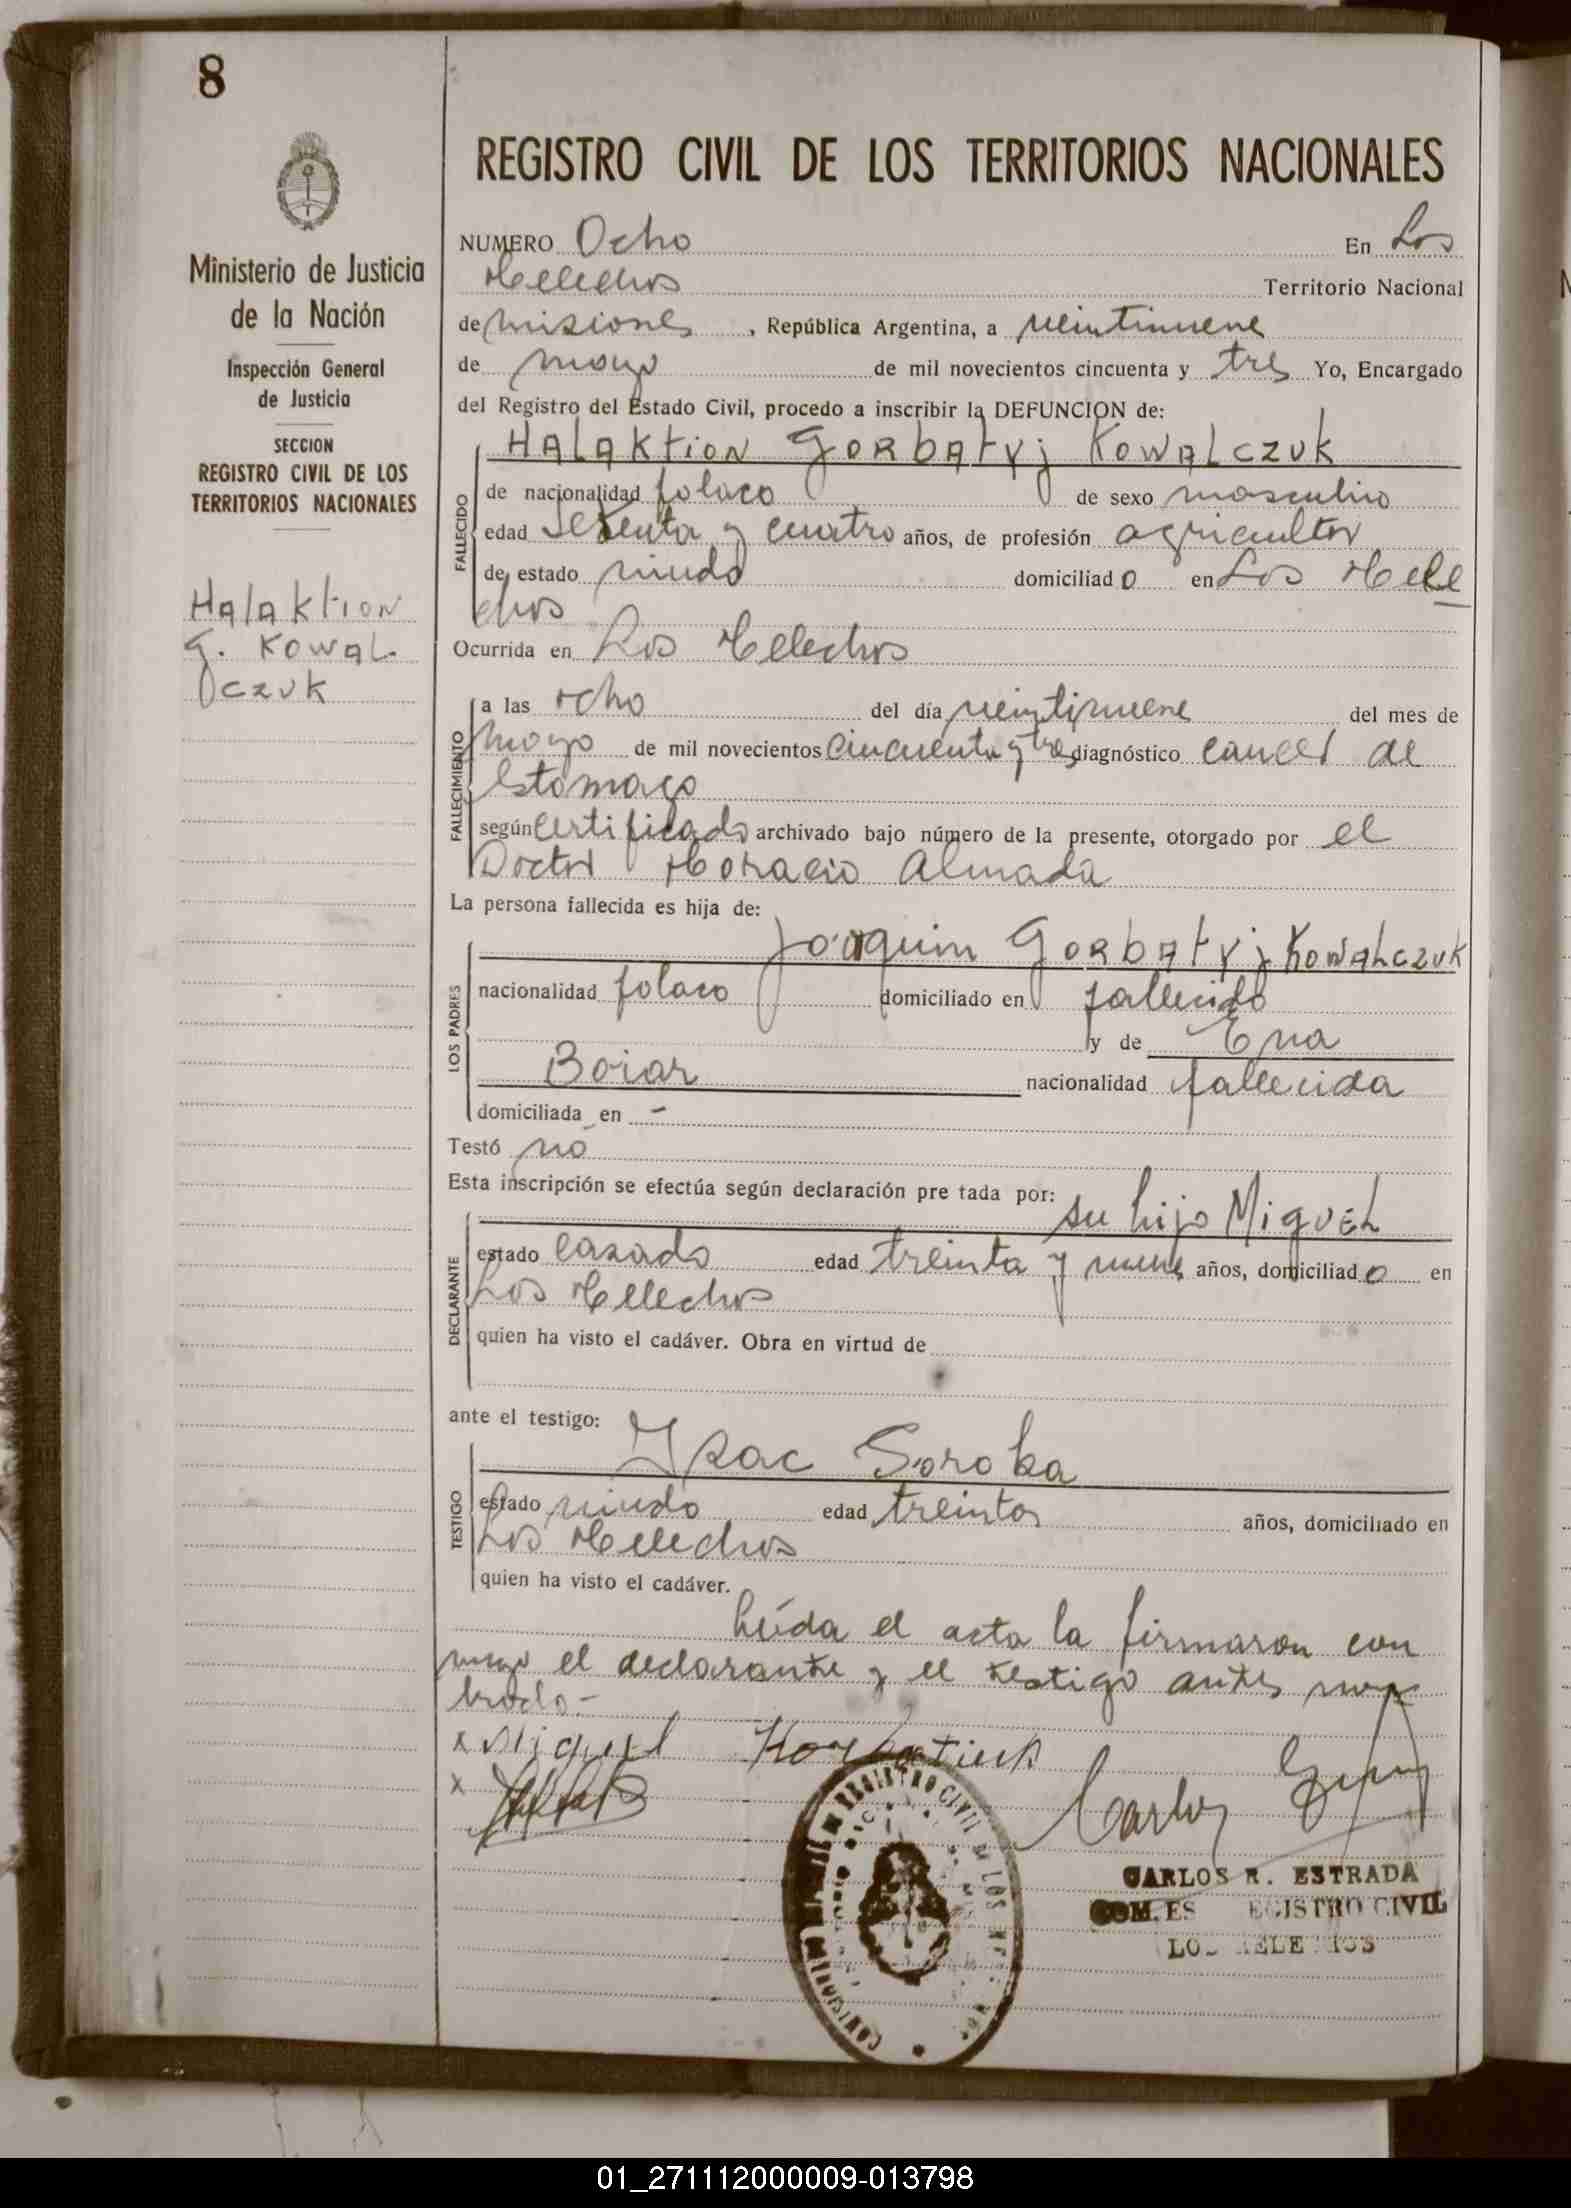 8
REGISTRO CIVIL DE LOS TERRITORIOS NACIONALES
Ministerio de Justicia
de la Nación
Inspección General
de Justicia
SECCION
REGISTRO CIVIL DE LOS
TERRITORIOS NACIONALES
Halaktion
G. Kowal-
czuk
NUMERO Ocho En Los
Helechos Territorio Nacional
de misiones, República Argentina, a veintinueve
de mayo de mil novecientos cincuenta y tres Yo, Encargado
del Registro del Estado Civil, procedo a inscribir la DEFUNCION de:
Halaktion Gorbatyj Kowalczuk
FALLECIDO
de nacionalidad polaco de sexo masculino
edad setenta y cuatro años, de profesión agricultor
de estado viudo domiciliado en Los Hele
chos
Ocurrida en Los Helechos
FALLECIMIENTO
a las ocho del día veintinueve del mes de
mayo de mil novecientos cincuenta y tres diagnóstico cancer de
estomago
según certificado archivado bajo número de la presente, otorgado por el
Doctor Horacio Almada
La persona fallecida es hija de:
LOS PADRES
Joaquin Gorbatyj Kowalczuk
nacionalidad polaco domiciliado en fallecido
y de Eva
Boiar nacionalidad fallecida
domiciliada en -
Testó no
Esta inscripción se efectúa según declaración pre tada por:
su hijo Miguel
DECLARANTE
estado casado edad treinta y nueve años, domiciliado en
Los Helechos
quien ha visto el cadáver. Obra en virtud de
ante el testigo:
Isac Soroka
TESTIGO
estado viudo edad treinta años, domiciliado en
Los Helechos
quien ha visto el cadáver.
Leída el acta la firmaron con
migo el declarante y el testigo antes nom
brado.-
x Miguel
x
Carlos
CARLOS R. ESTRADA
REGISTRO CIVIL
LOS HELECHOS
01_271112000009-013798